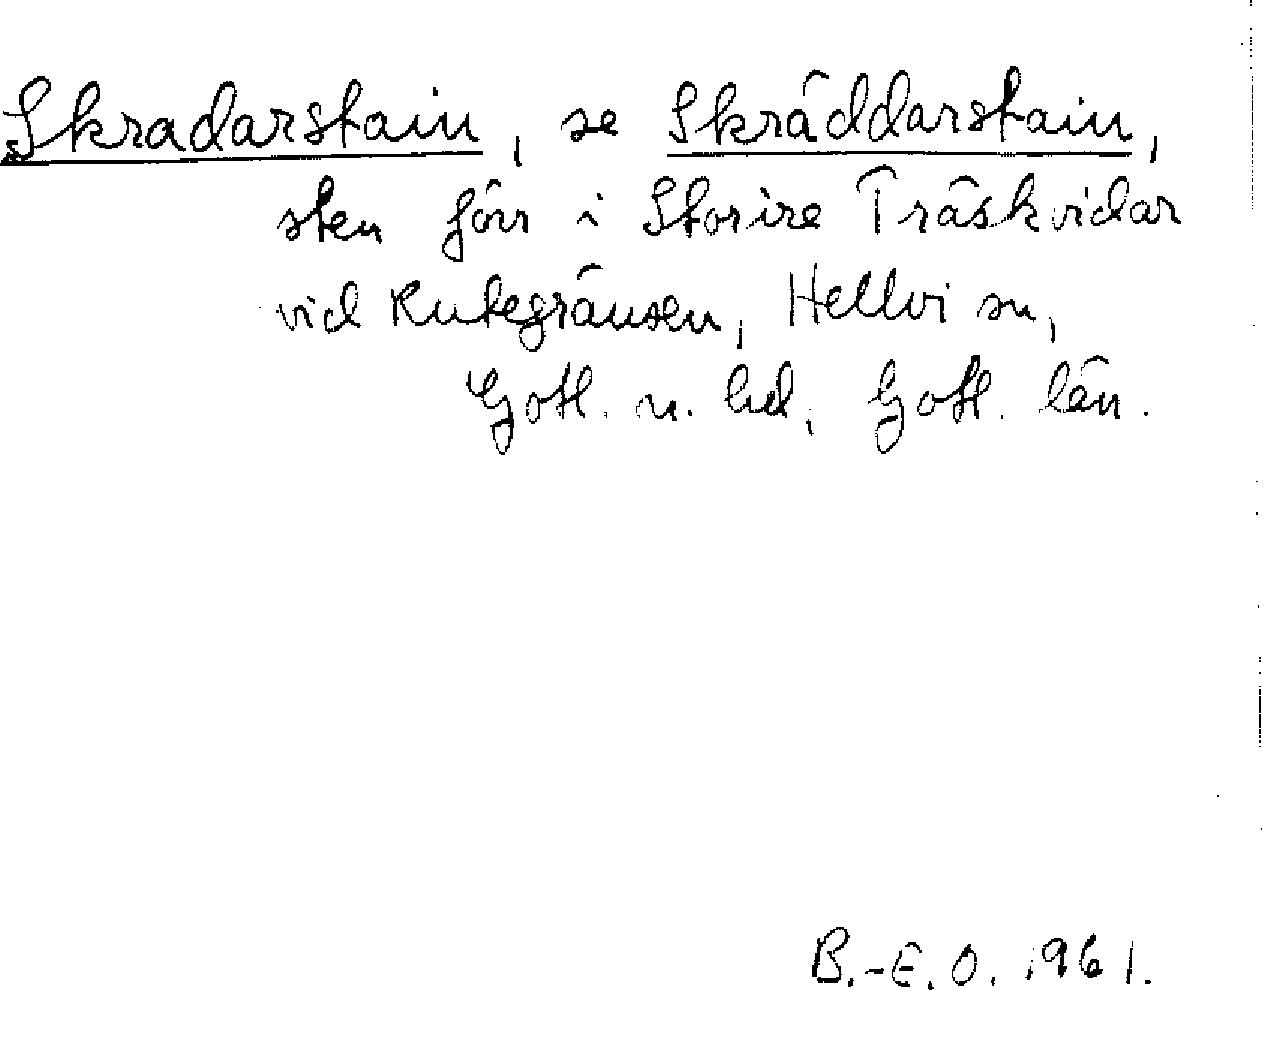 Skradarstain, se Skräddarstain,
sten förr i Storire Träskvidar
vid Rutegränsen, Hellvi sn,
Gotl. n. hd, Gotl. län.
B.-E. O. 1961.